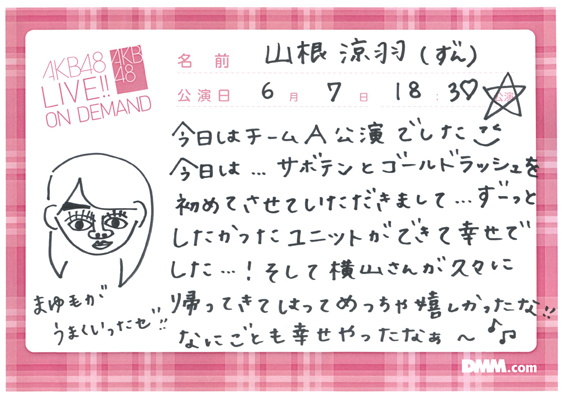 AKB48
LIVE!!
ON DEMAND
AKB
48
名前 山根涼羽(ずん)
公演日 6月7日 18:30 公演
今日はチームA公演でした
今日は…サボテンとゴールドラッシュを
初めてさせていただきまして…ずーっと
したかったユニットができて幸せで
した…!そして横山さんが久々に
帰ってきてはってめっちゃ嬉しかったな!!
なにごとも幸せやったなぁ〜♪♫
まゆ毛が
うまくいったぜ!!
DMM.com